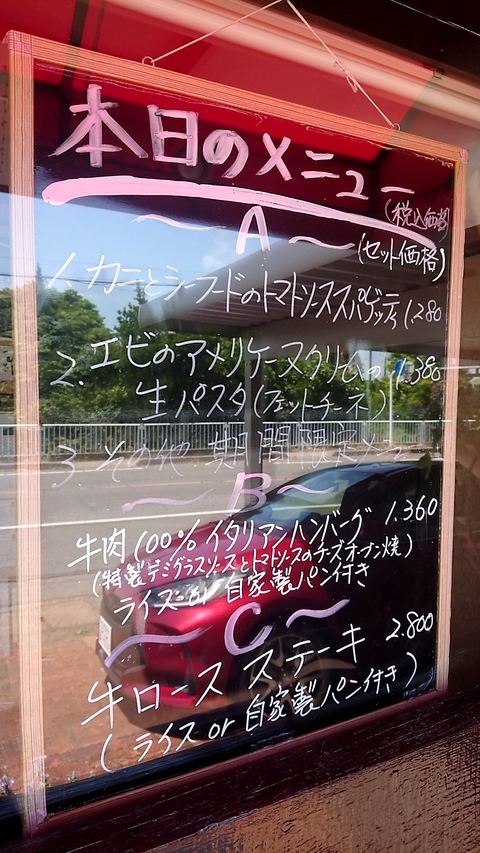 本日のメニュー
(税込価格)
~ A ~ (セット価格)
1. カニとシーフードのトマトソーススパゲッティ 1.280
2. エビのアメリケーヌクリームの 1.380
生パスタ(フェットチーネ)
3. その他 期間限定メニュー
~ B ~
牛肉100%イタリアンハンバーグ 1.360
(特製デミグラスソースとトマトソースのチーズオーブン焼)
ライス or 自家製パン付き
~ C ~
牛ロースステーキ 2.800
(ライス or 自家製パン付き)